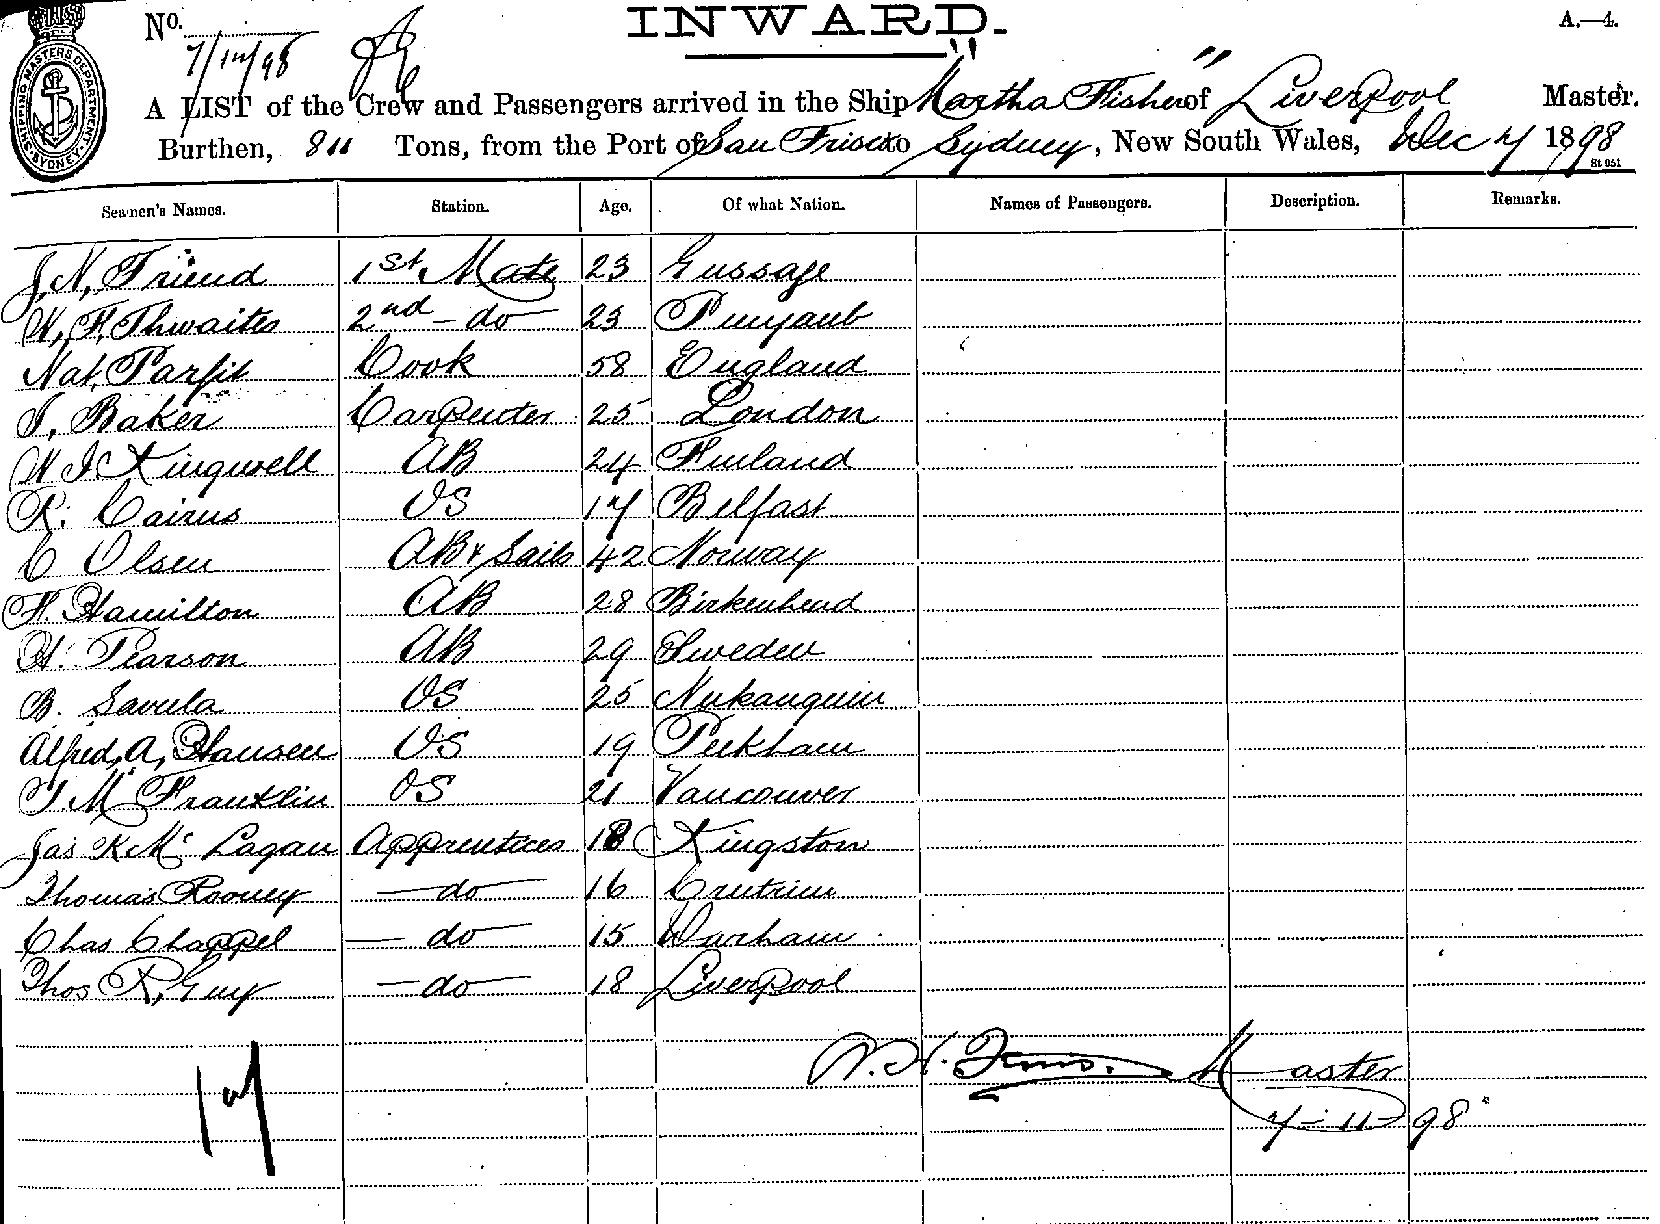 INWARD.
A.—4.
No.
7/12/98
A LIST of the Crew and Passengers arrived in the Ship "Martha Fisher" of Liverpool Master.
Burthen, 811 Tons, from the Port of San Frisco to Sydney, New South Wales, Dec 7 1898
St 051
SHIPPING MASTERS DEPARTMENT SYDNEY
Seamen's Names. Station. Age. Of what Nation. Names of Passengers. Description. Remarks.
J, N, Friend 1st Mate 23 Gussage
W, F, Thwaites 2nd - do 23 Punyaub
Nat, Parfit Cook 58 England
J, Baker Carpenter 25 London
W J Kingwell AB 24 Finland
R. Cairns OS 17 Belfast
C Olsen AB & Sails 42 Norway
H. Hamilton AB 28 Birkenhead
H. Pearson AB 29 Sweden
B. Savula OS 25
Alfred, A, Hansen OS 19 Peckham
J M Franklin OS 21 Vancouver
Jas K Mc Lagan Apprentices 18 Kingston
Thomas Rooney — do — 16
Chas Chappel — do — 15 Warham
Thos R, Guy — do — 18 Liverpool
Master
7-11-98
17